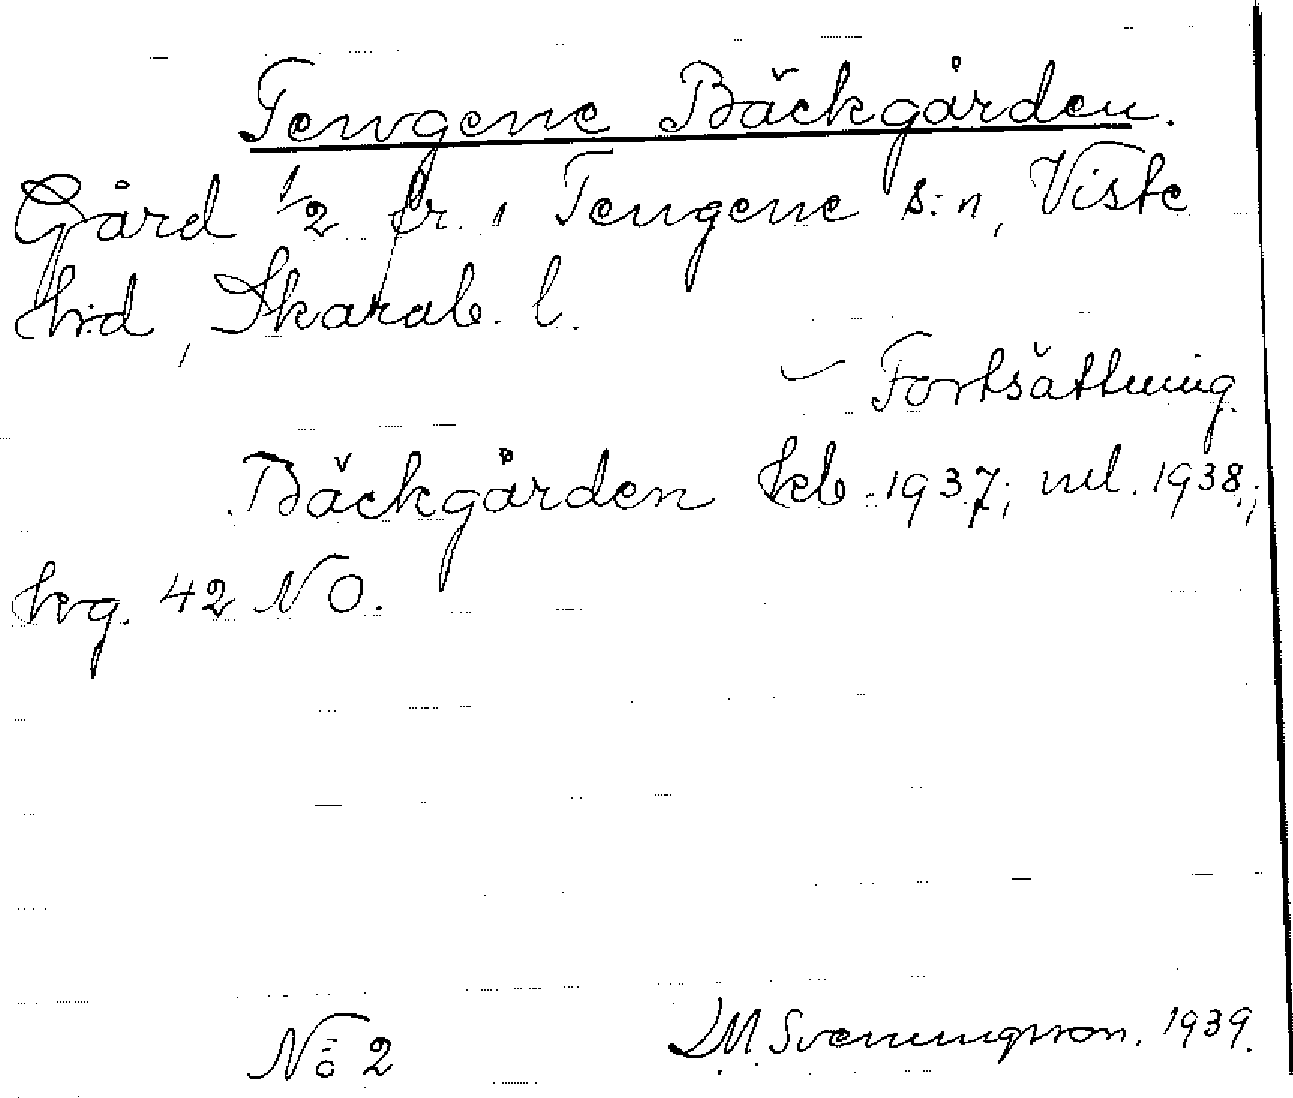 Tengene Bäckgården.
Gård 1/2 fr. i Tengene s:n, Viste
hrd, Skarab. l.
Fortsättning.
Bäckgården kb 1937; ml. 1938;
hvg. 42 NO.
No 2 LM. Svenungsson. 1939.